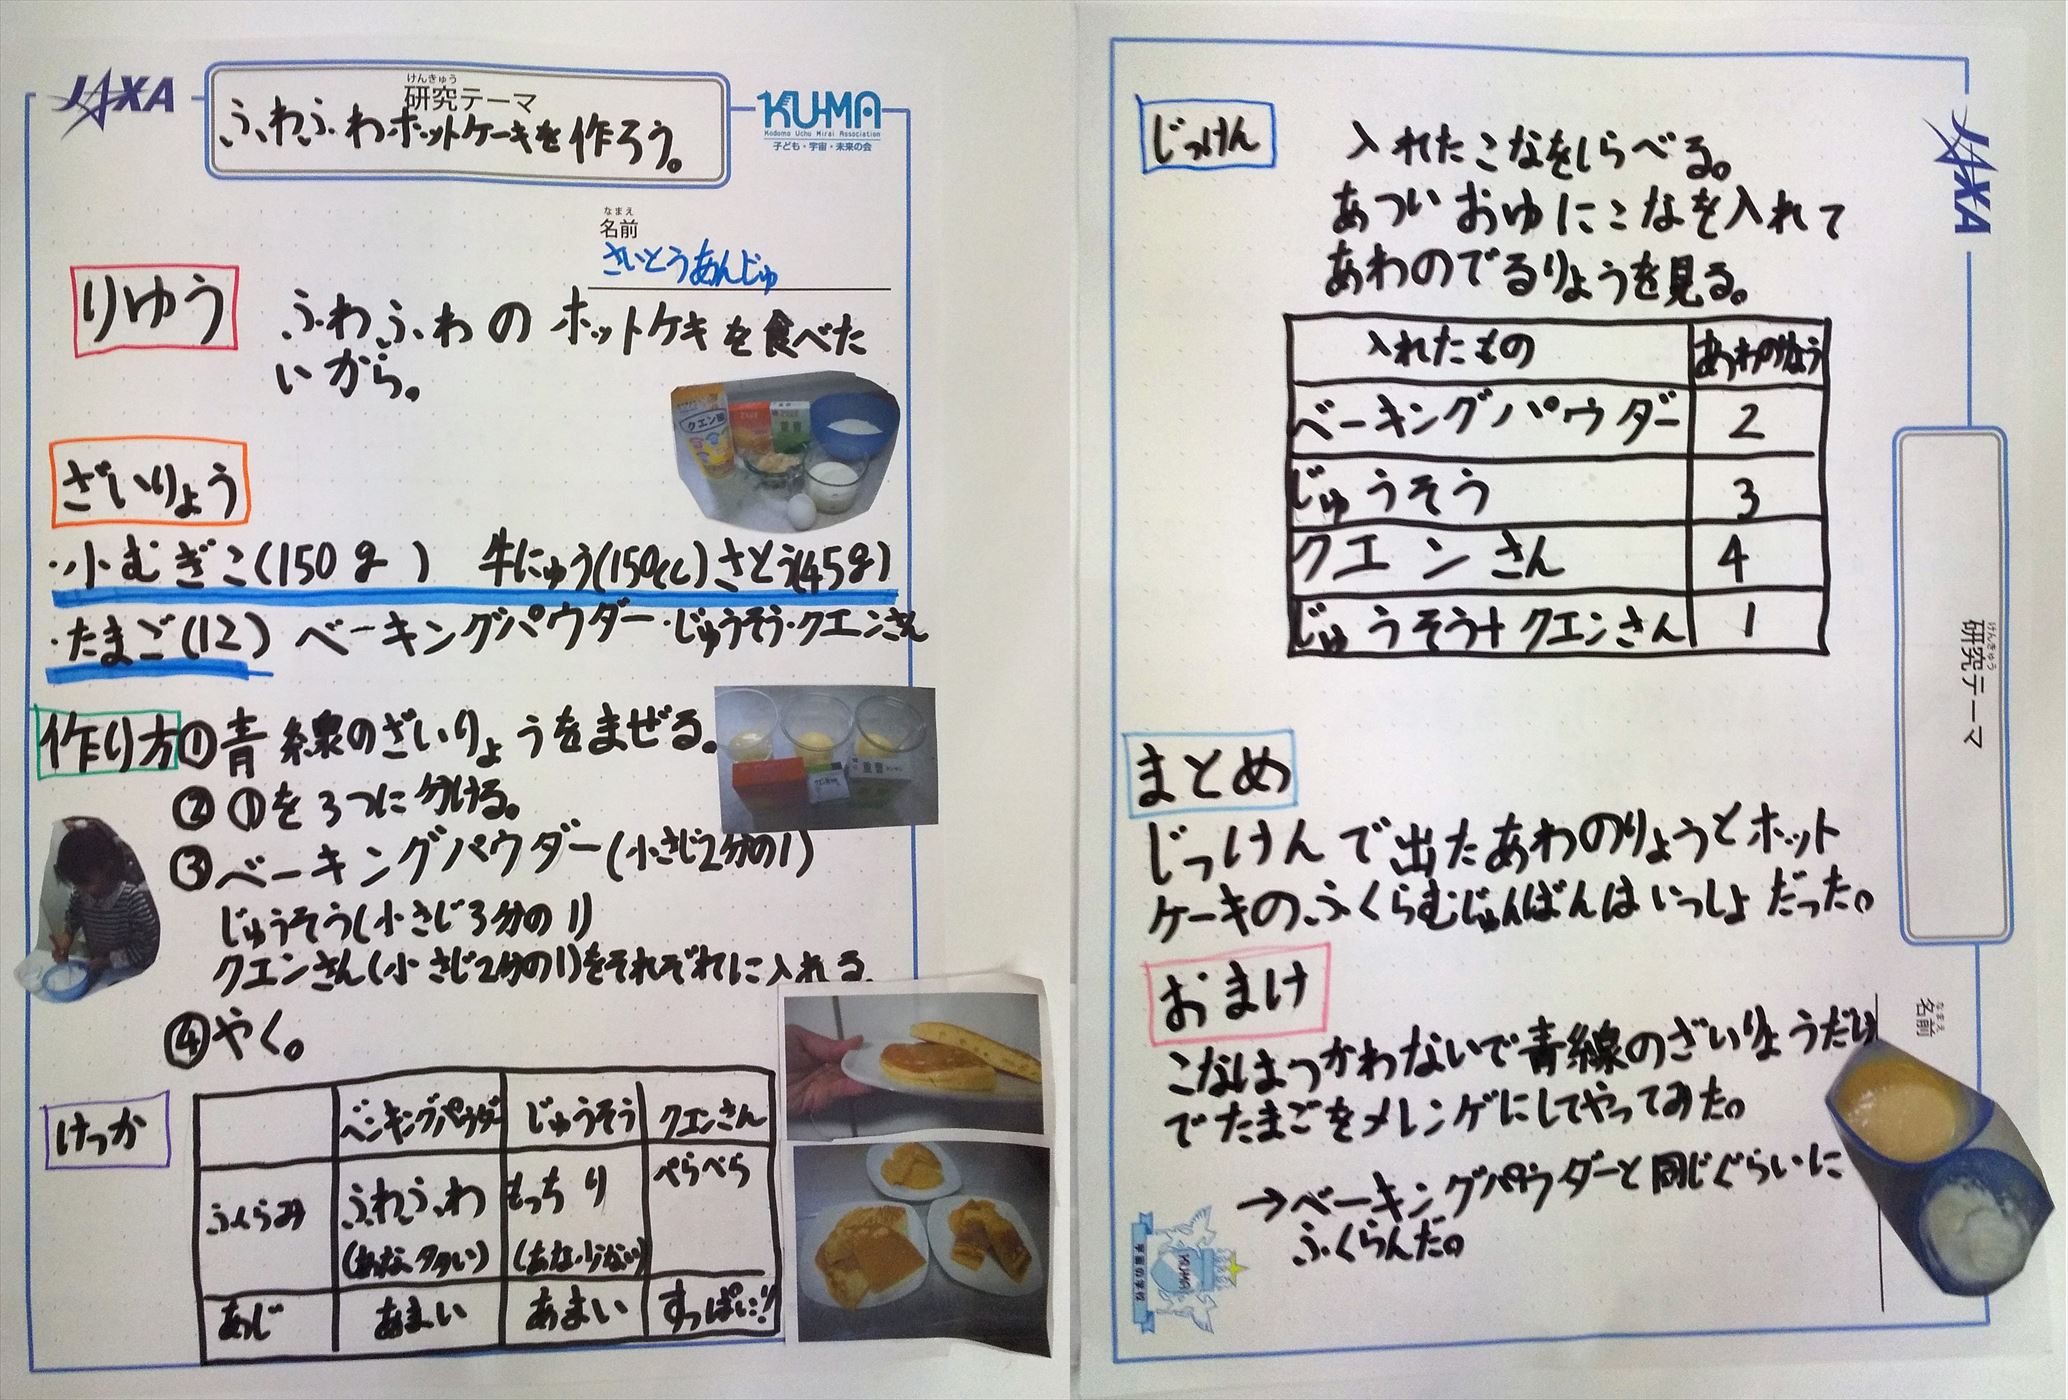 JAXA
けんきゅう
研究テーマ
ふわふわホットケーキを作ろう。
KU-MA
Kodomo Uchu Mirai Association
子ども・宇宙・未来の会
なまえ
名前
さいとうあんじゅ
りゆう
ふわふわのホットケキを食べた
いから。
クエン酸
重曹
ざいりょう
・小むぎこ(150g) 牛にゅう(150cc)さとう(45g)
・たまご(12) ベーキングパウダー・じゅうそう・クエンさん
作り方
①青線のざいりょうをまぜる。
②①を3つに分ける。
重曹
③ベーキングパウダー(小さじ2分の1)
じゅうそう(小さじ3分の1)
クエンさん(小さじ2分の1)をそれぞれに入れる.
④やく。
けっか
ベーキングパウダー じゅうそう クエンさん
ふくらみ ふわふわ もっちり ぺらぺら
(あな多い) (あな少ない)
あじ あまい あまい すっぱい!!
じっけん
入れたこなをしらべる。
あついおゆにこなを入れて
あわのでるりょうを見る。
入れたもの あわのりょう
ベーキングパウダー 2
じゅうそう 3
クエンさん 4
じゅうそう+クエンさん 1
まとめ
じっけんで出たあわのりょうとホット
ケーキのふくらむじゅんばんはいっしょだった。
おまけ
こなはつかわないで青線のざいりょうだけ
でたまごをメレンゲにしてやってみた。
→ベーキングパウダーと同じぐらいに
ふくらんだ。
JAXA
けんきゅう
研究テーマ
なまえ
名前
KU-MA
宇宙の学校